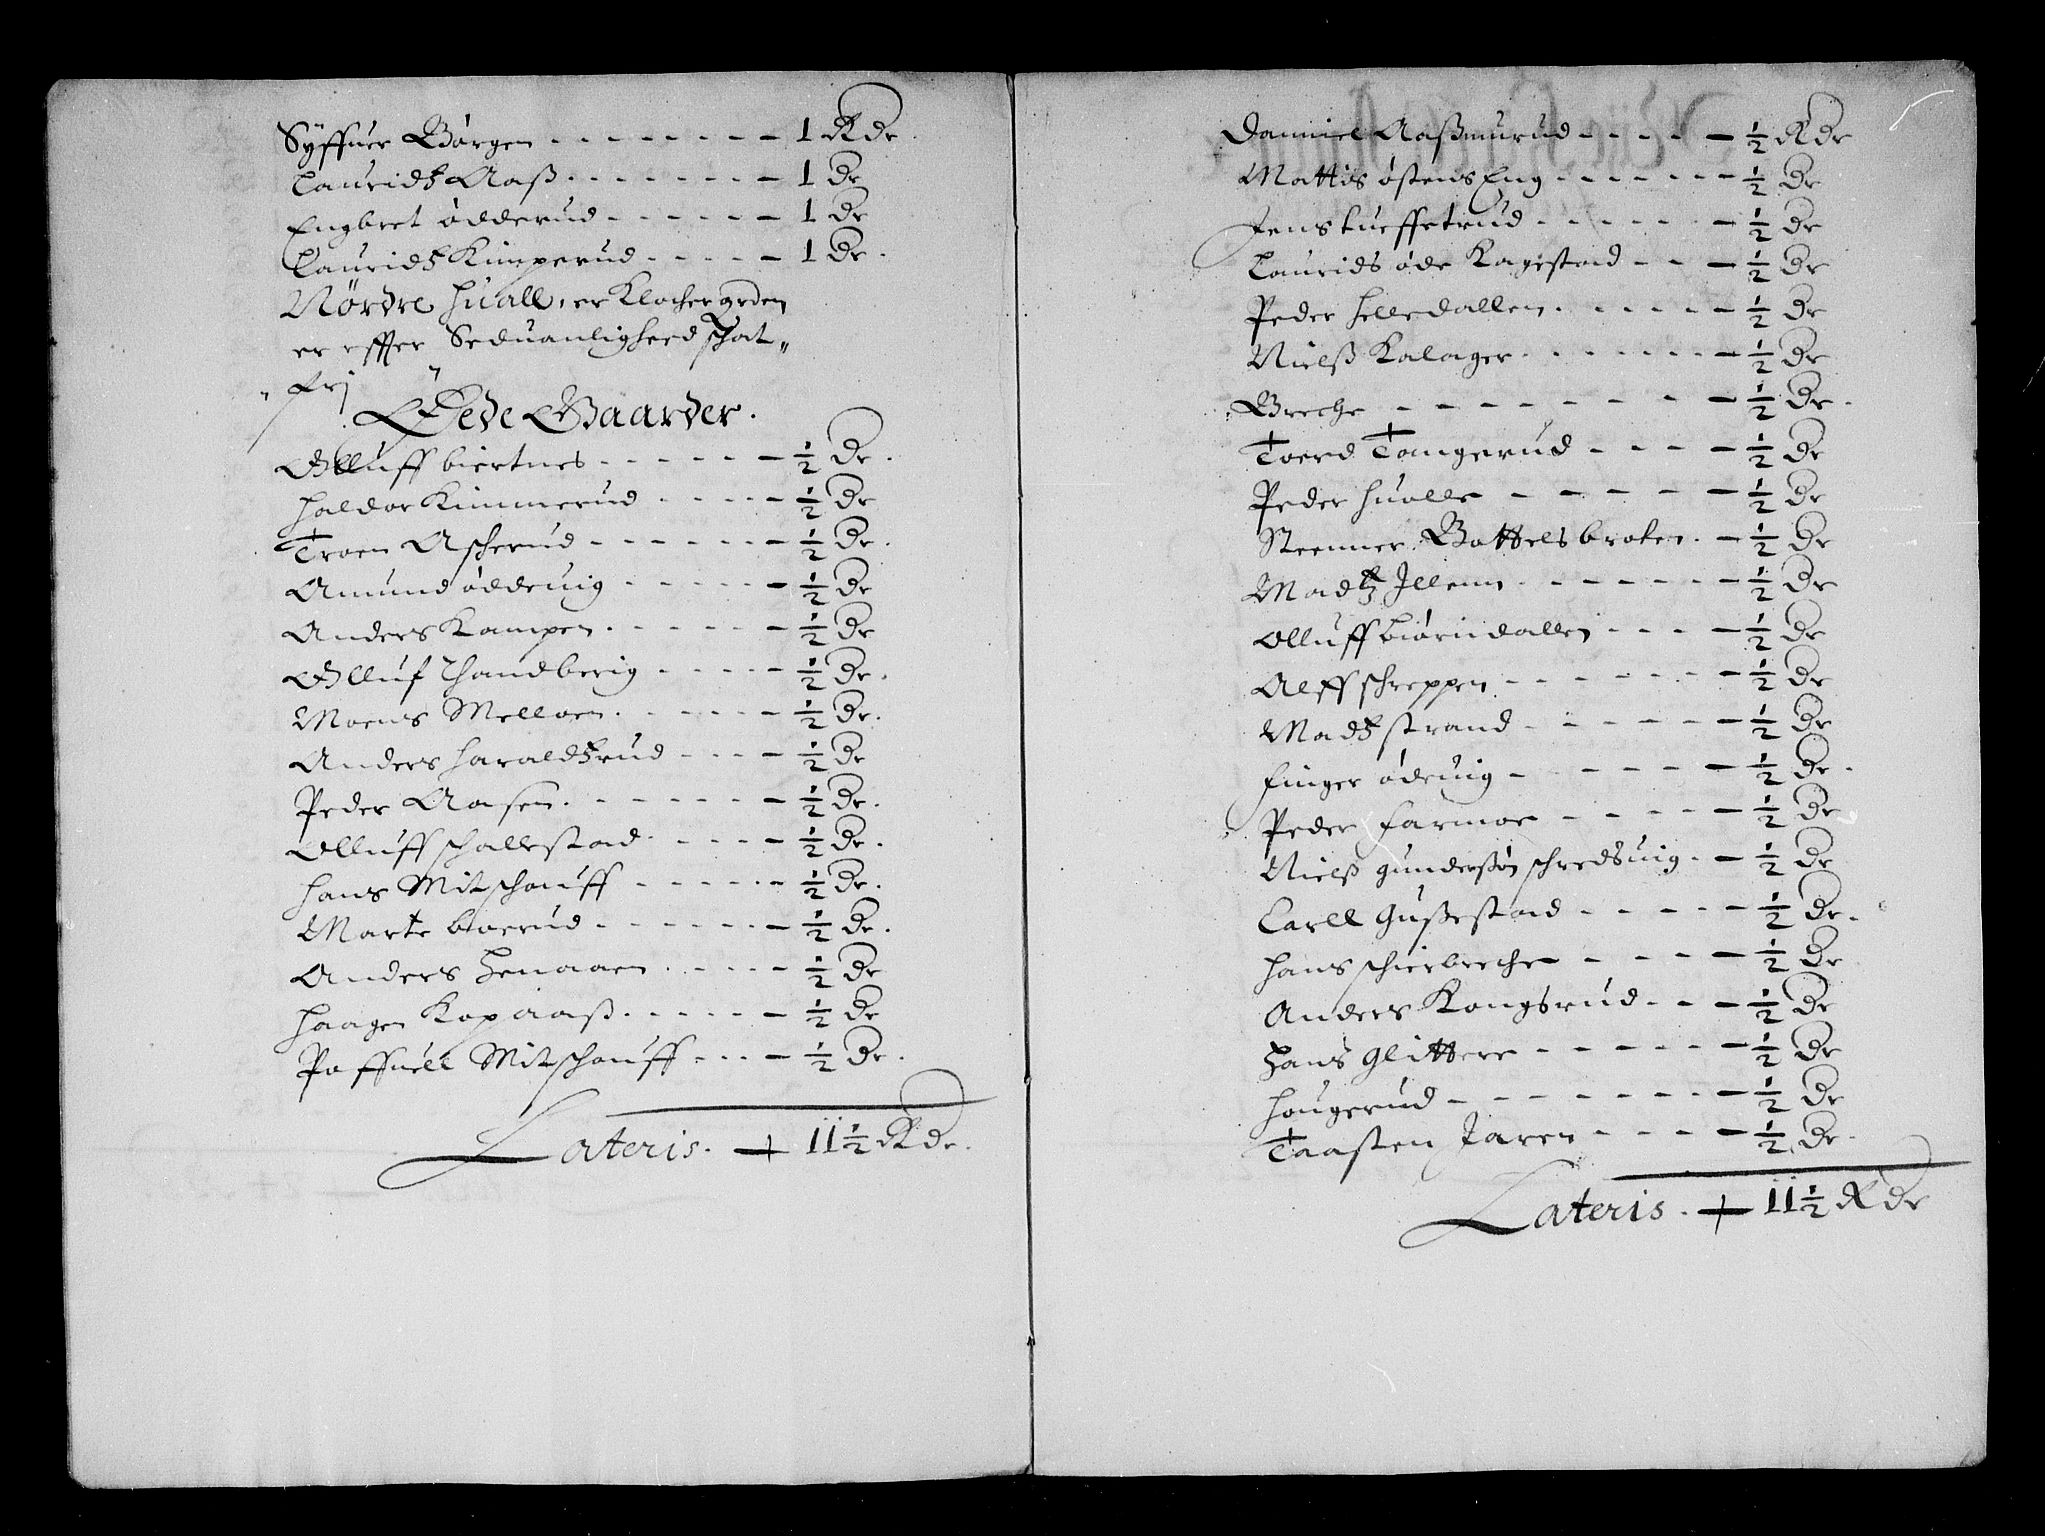 Syffuer Børgen - - - - - - - 1 Rdr
Lauridtz Aaß - - - - - - - 1 dr
Engbret ødderud - - - - - - 1 dr
Lauridtz Kimperud - - - - - 1 dr.
Nørdre Huall, er Klocher grden
er effter Seduanligheed schat„
„ frj
Øede Gaarder.
Olluff biertnes - - - - - - ½ dr.
Haldor Kimmerud - - - - ½ dr
Troen Ascherud - - - - - - ½ dr.
Amund ødderuig - - - - - ½ dr
Anders Kampen - - - - - ½ dr
Olluf Thandberig - - - - ½ dr.
Moens Melloen - - - - - ½ dr.
Anders Haraldtzrud - - - - ½ dr
Peder Aasen - - - - - - ½ dr.
Olluff schallestad - - - - ½ dr.
Hans Mitschouff - - - - - ½ dr.
Marte boerud - - - - - - ½ dr.
Anders Henaaen - - - - ½ dr
Haagen Kopaaß - - - - - ½ dr
Poffuell Mitschouff - - - - ½ dr.
Lateris. — 11½ Rdr.
Danniel Aaßmurud - - - - - ½ Rdr
Mattis østens Eng - - - - - - ½ dr
Jens tueffetrud - - - - - - ½ dr
Laurids øde Kagestad - - - ½ dr
Peder Helledallen - - - - - ½ dr
Nielß Kalager - - - - - - ½ dr
Breche - - - - - - - - ½ dr.
Toerd Tangerud - - - - - ½ dr
Peder Hualle - - - - - ½ dr
Steenner Battelsbroten. - ½ dr
Madtz Illenn - - - - - - ½ dr
Olluff biørndallen - - - - ½ dr
Alff schreppen - - - - - - ½ dr
Madtz strand - - - - - - ½ dr
Finger øderuig - - - - - - ½ dr.
Peder Farmoe - - - - - ½ dr
Nielß gunderßøn schredsuig - - ½ dr
Carll Gußestad - - - - - ½ dr.
Hans schierbreche - - - - ½ dr
Anders Kongsrud - - - ½ dr
Hans Glittere - - - - - - ½ dr
Hougerud - - - - - - - - ½ dr
Taasten Jaren - - - - - ½ dr.
Lateris. — 11½ Rdr